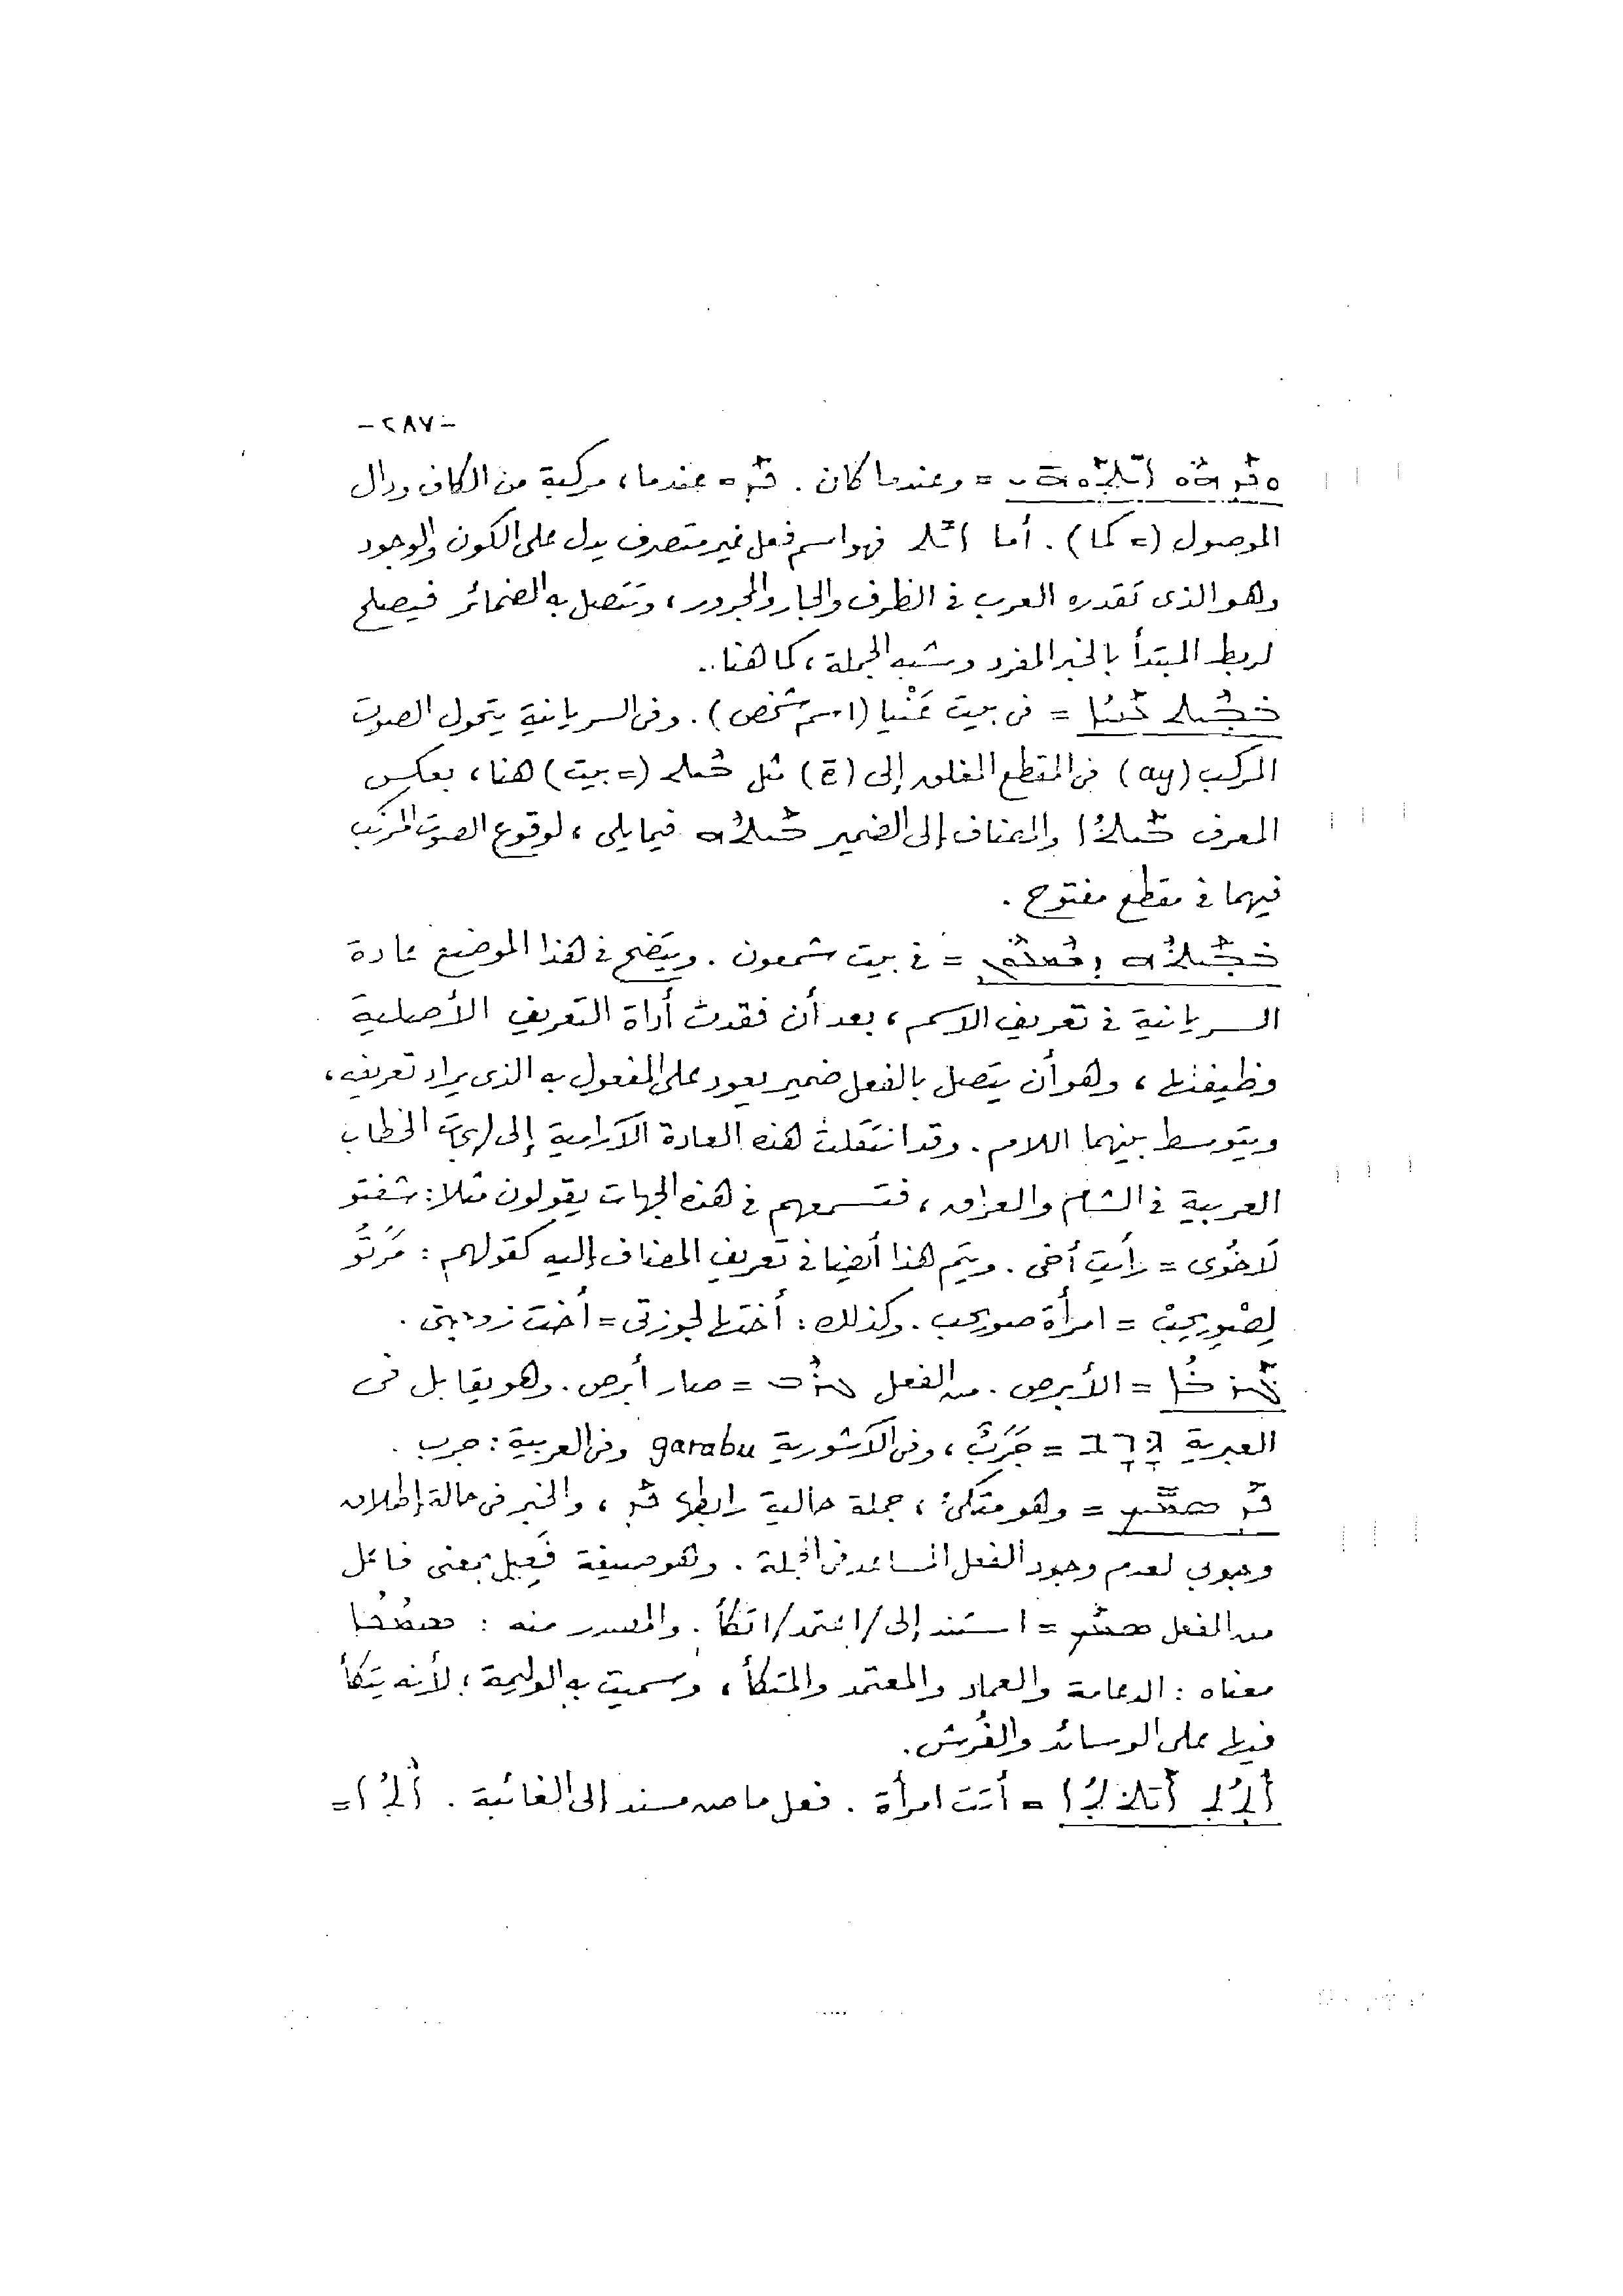 -٢٨٧-
ܘܟܕ ܗܘ ܐܝܬܘܗܝ = وعندما كان . ܟܕ = عندما، مركبة من الكاف ودال
الموصول (= كما) . أما ܐܝܬ فهو اسم فعل غير متصرف يدل على الكون والوجود
وهو الذى تقدره العرب فى الظرف والجار والمجرور، وتتصل به الضمائر فيصلح
لربط المبتدأ بالخبر المفرد وشبه الجملة، كما هنا..
ܒܒܝܬ ܥܢܝܐ = فى بيت عَنْيا (اسم شخص) . وفى السريانية يتحول الصوت
المركب (ay) فى المقطع المغلق إلى (ē) مثل ܒܝܬ (= بيت) هنا، بعكس
المعرف ܒܝܬܐ والمضاف إلى الضمير ܒܝܬܗ فيما يلى، لوقوع الصوت المركب
فيهما فى مقطع مفتوح .
ܒܒܝܬܗ ܕܫܡܥܘܢ = فى بيت شمعون . ويتضح فى هذا الموضع عادة
السريانية فى تعريف الاسم، بعد أن فقدت أداة التعريف الأصلية
وظيفتها، وهو أن يتصل بالفعل ضمير يعود على المفعول به الذى يراد تعريفه،
ويتوسط بينهما اللام . وقد انتقلت هذه العادة الآرامية إلى لهجات الخطاب
العربية فى الشام والعراق، فتسمعهم فى هذه الجهات يقولون مثلا: شفتو
لَاخُوى = رأيت أخى . ويتم هذا أيضا فى تعريف المضاف إليه كقولهم : مَرَتُو
لِصْوِيحِبْ = امرأة صويحب . وكذلك : أختها لجوزتى = أخت زوجتى .
ܓܪܒܐ = الأبرص . من الفعل ܓܪܒ = صار أبرص . وهو يقابل فى
العبرية גָּרָב = جَرَبٌ، وفى الآشورية garabu وفى العربية : جرب .
ܟܕ ܣܡܝܟ = وهو متكئ، جملة حالية رابطها ܟܕ، والخبر فى حالة إطلاق
وجوبى لعدم وجود الفعل المساعد فى الجملة . وهو صيغة فَعِيل بمعنى فاعل
من الفعل ܣܡܟ = استند إلى/اعتمد/اتكأ . والمصدر منه : ܣܡܟܐ
معناه : الدعامة والعماد والمعتمد والمتكأ، وسميت به الوليمة؛ لأنه يتكأ
فيها على الوسائد والفُرش.
ܐܬܬ ܐܢܬܬܐ = أتت امرأة . فعل ماض مسند إلى الغائبة . ܐܬܐ =